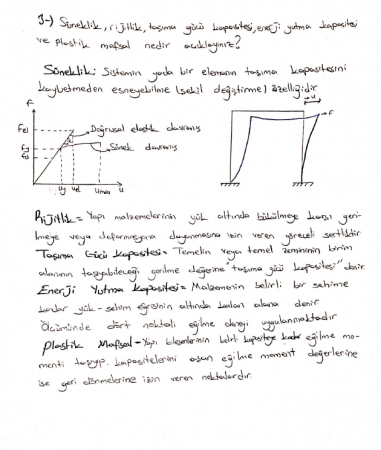 3-) Süneklik, rijitlik, taşıma gücü kapasitesi, enerji yutma kapasitesi
ve plastik mafsal nedir açıklayınız?
Süneklik: Sistemin yada bir elemanın taşıma kapasitesini
kaybetmeden esneyebilme (şekil değiştirme) özelliğidir
F
Fel
Fy
Doğrusal elastik davranış
Sünek davranış
uy
uel
umax
u
u
F
Rijitlik = Yapı malzemelerinin yük altında bükülmeye karşı geri-
lmeye veya deformasyona dayanmasına izin veren göreceli sertliktir
Taşıma Gücü Kapasitesi = Temelin veya temel zemininin birim
alanının taşıyabileceği gerilme değerine "taşıma gücü kapasitesi" denir.
Enerji Yutma Kapasitesi = Malzemenin belirli bir sehime
kadar yük - sehim eğrisinin altında kalan alana denir
Ölçümünde dört noktalı eğilme deneyi uygulanmaktadır
Plastik Mafsal - Yapı bileşenlerinin belirli kapasiteye kadar eğilme mo-
menti taşıyıp, kapasitelerini aşan eğilme moment değerlerine
ise geri dönmelerine izin veren noktalardır